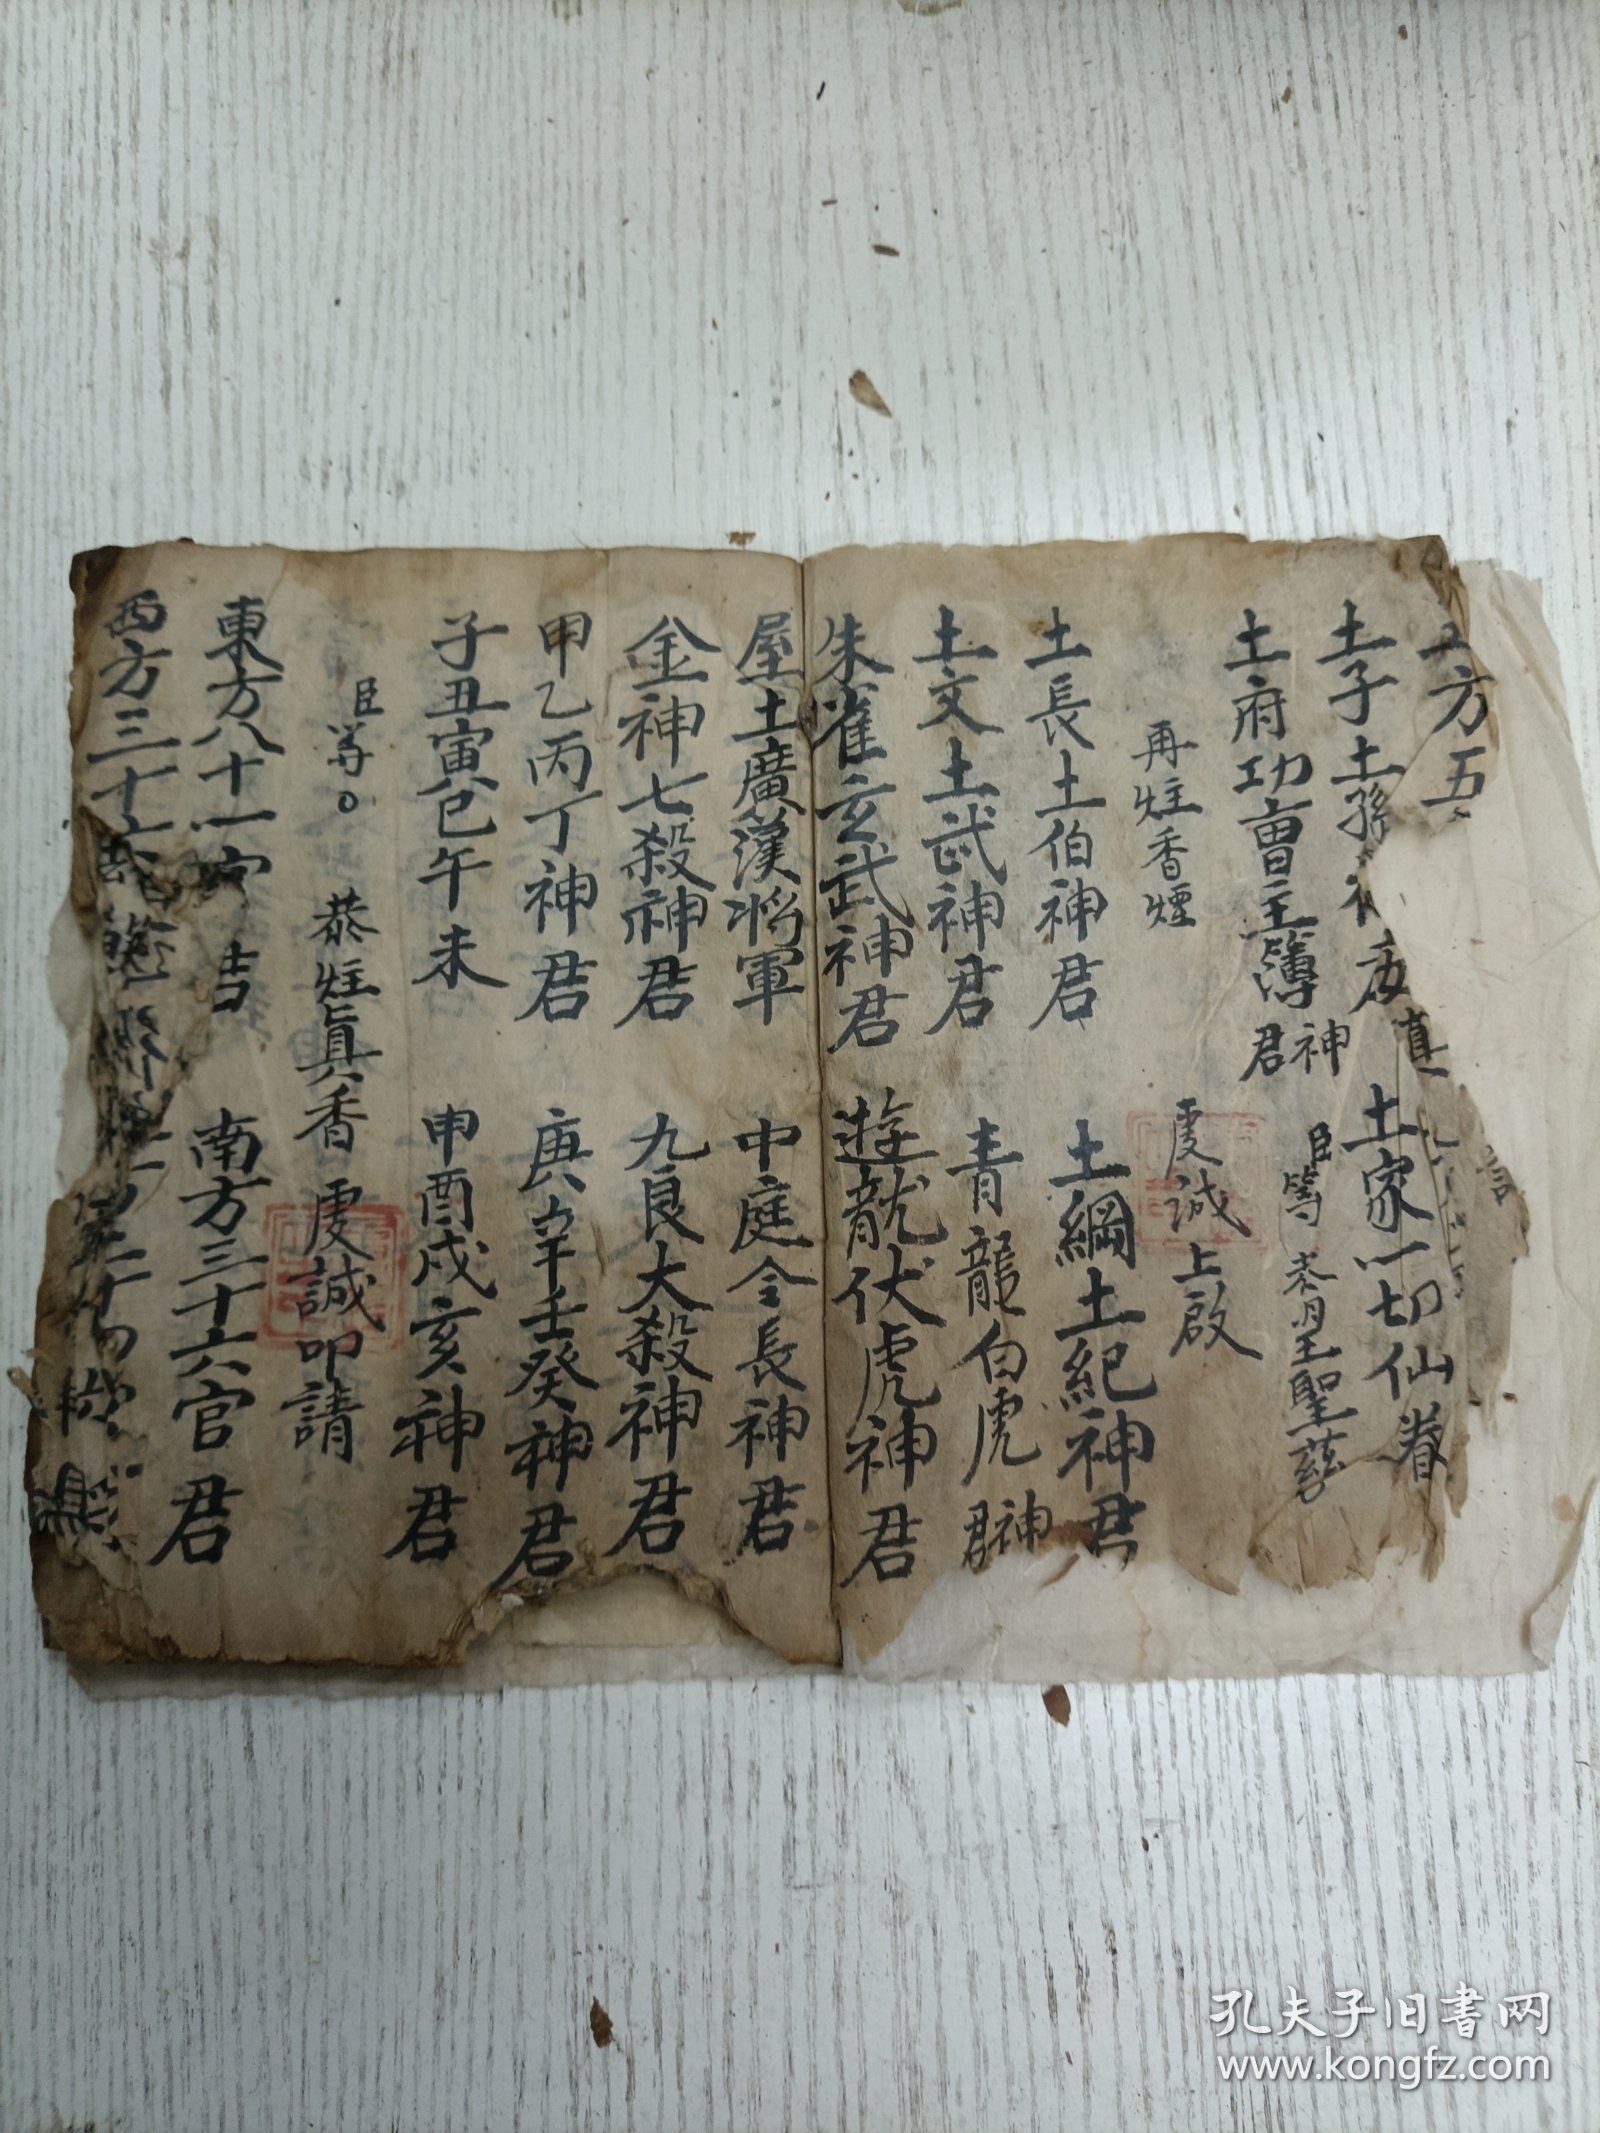 五方五
土子土孫神君 土家一切仙眷
土府功曹主簿神君 臣等 恭望聖慈
再炷香煙 虔誠上啟
土長土伯神君 土綱土紀神君
土文土武神君 青龍白虎神君
朱雀玄武神君 遊龍伏虎神君
屋土廣漢將軍 中庭令長神君
金神七殺神君 九良大殺神君
甲乙丙丁神君 庚辛壬癸神君
子丑寅巳午未 申酉戌亥神君
臣等 恭炷真香 虔誠叩請
東方八十一 吉 南方三十六官君
西方三十六
孔夫子旧书网
www.kongfz.com